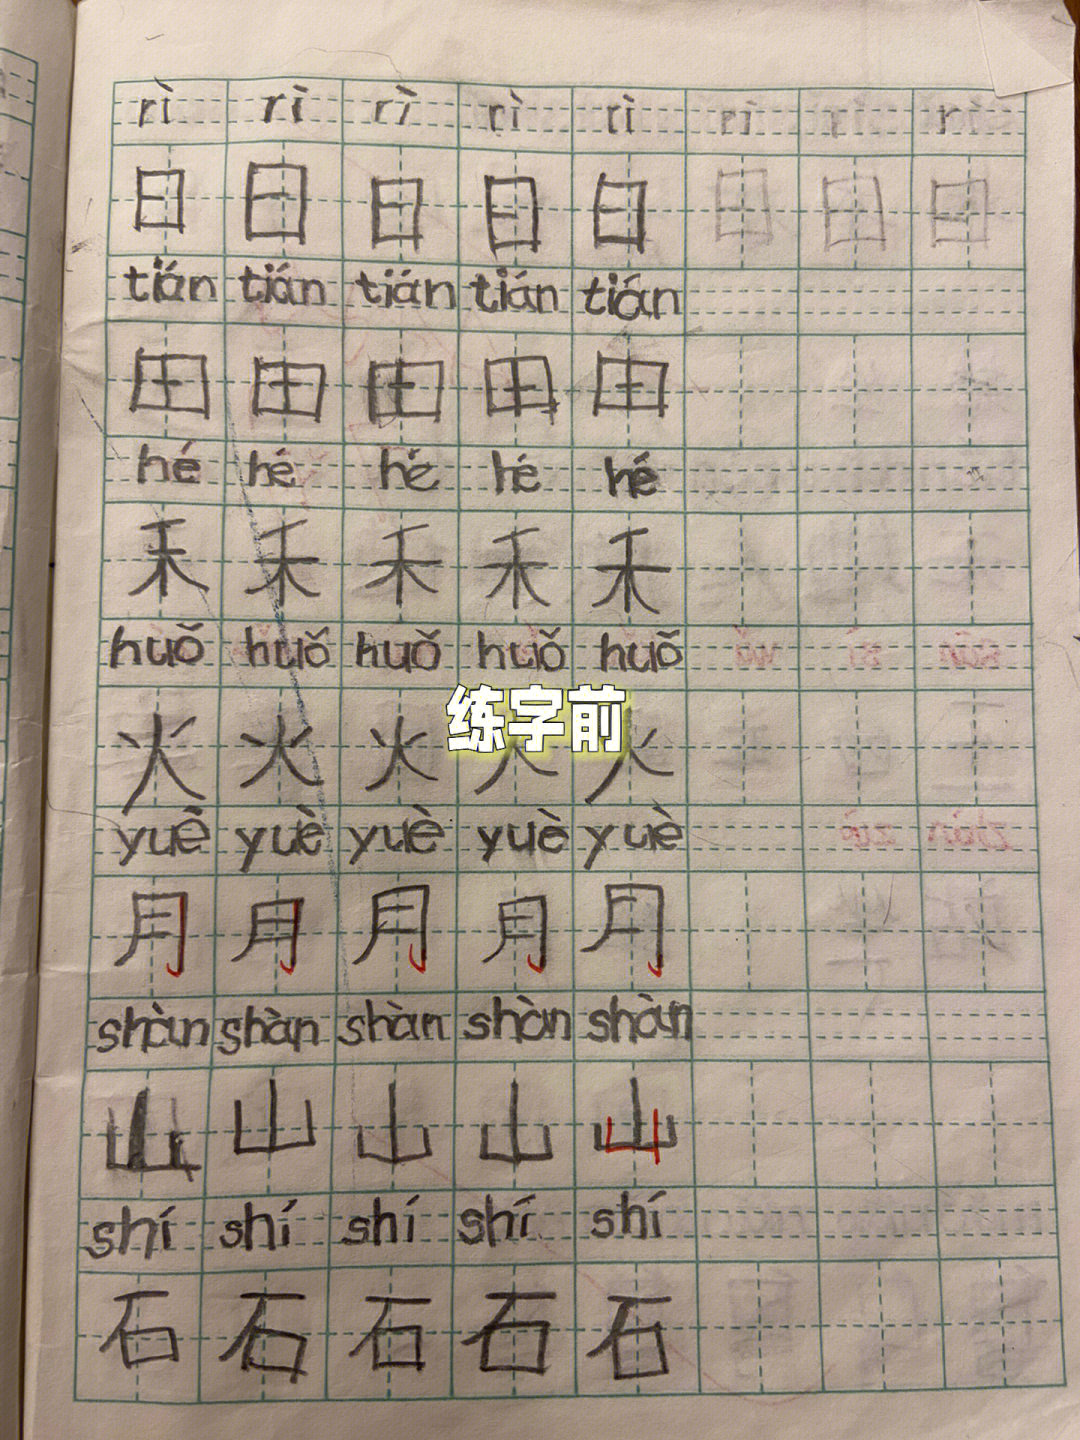 rì rì rì rì rì rì rì rì
日 日 日 日 日 日 日 日
tián tián tián tián tián
田 田 田 田 田
hé hé hé hé hé
禾 禾 禾 禾 禾
huǒ huǒ huǒ huǒ huǒ
练字前
火 火 火 火 火
yuè yuè yuè yuè yuè
月 月 月 月 月
shàn shàn shàn shàn shàn
山 山 山 山 山
shí shí shí shí shí
石 石 石 石 石